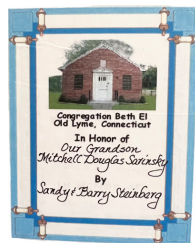 Congregation Beth El
Old Lyme, Connecticut
In Honor of
Our Grandson
Mitchell Douglas Sarinsky
By
Sandy & Barry Steinberg